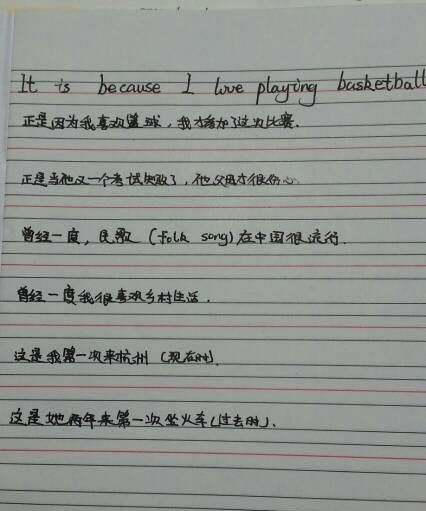 It is because I love playing basketball
正是因为我喜欢篮球，我才参加了这次比赛．
正是当他又一个考试失败了，他父母才很伤心．
曾经一度，民歌 (folk song) 在中国很流行．
曾经一度我很喜欢乡村生活．
这是我第一次来杭州 (现在时)．
这是她两年来第一次坐火车(过去时)．